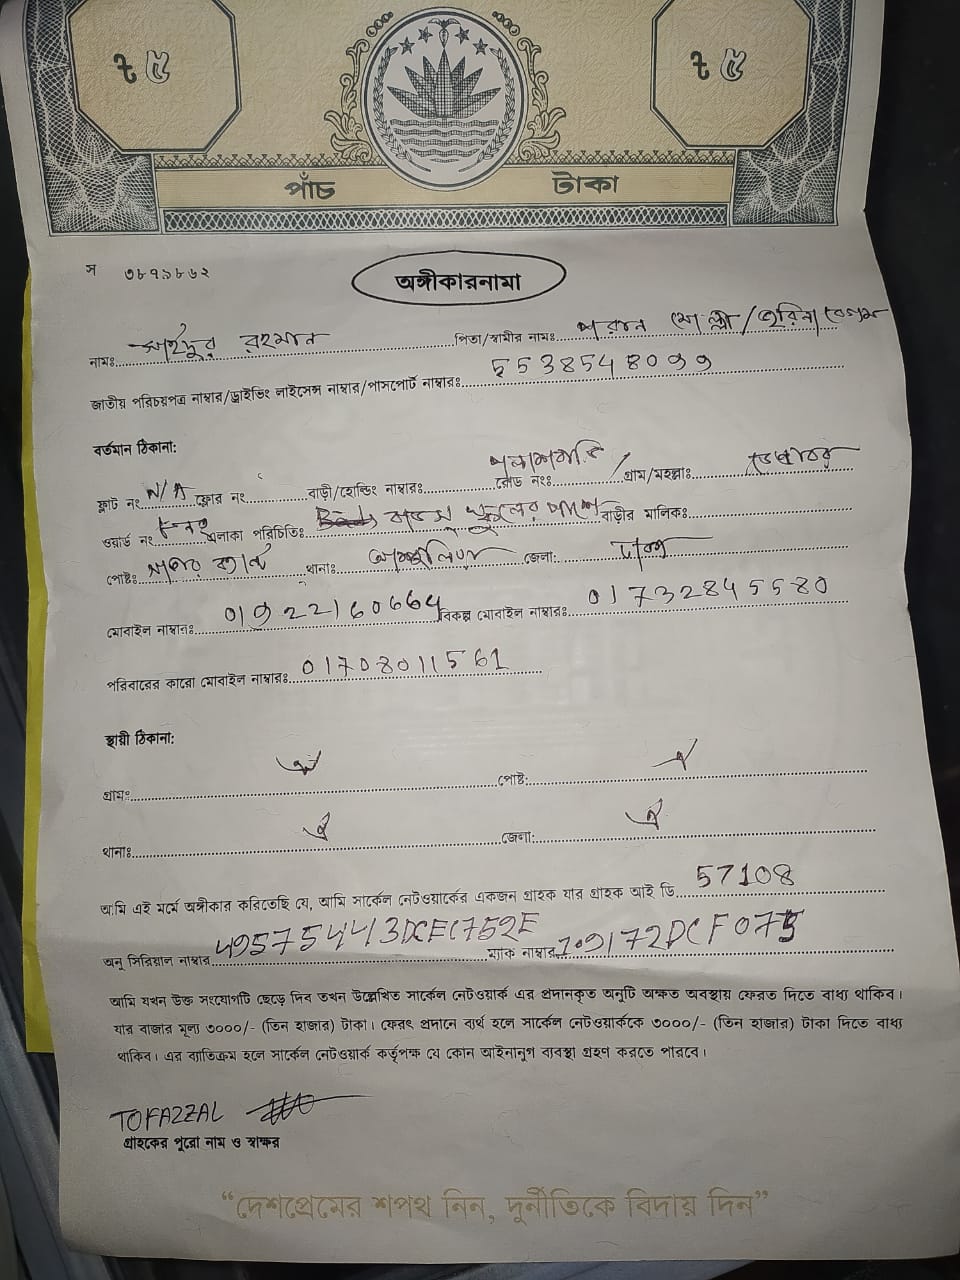 ৳ ৫ ৳ ৫
পাঁচ টাকা
স ৩৮৭৯৮৬২
অঙ্গীকারনামা
নামঃ রহমান পিতা/স্বামীর নামঃ পরান মোল্লা/জরিনা বেগম
জাতীয় পরিচয়পত্র নাম্বার/ড্রাইভিং লাইসেন্স নাম্বার/পাসপোর্ট নাম্বারঃ 5538548099
বর্তমান ঠিকানা:
ফ্লাট নং N/A ফ্লোর নং বাড়ী/হোল্ডিং নাম্বারঃ পলাশবাড়ি রোড নংঃ / গ্রাম/মহল্লাঃ
ওয়ার্ড নং এলাকা পরিচিতিঃ স্কুলের পাশে বাড়ীর মালিকঃ
পোষ্টঃ থানাঃ আশুলিয়া জেলা: ঢাকা
মোবাইল নাম্বারঃ 01922160664 বিকল্প মোবাইল নাম্বারঃ 01732845580
পরিবারের কারো মোবাইল নাম্বারঃ 01708011561
স্থায়ী ঠিকানা:
গ্রামঃ ঐ পোষ্ট: ঐ
থানাঃ ঐ জেলা: ঐ
আমি এই মর্মে অঙ্গীকার করিতেছি যে, আমি সার্কেল নেটওয়ার্কের একজন গ্রাহক যার গ্রাহক আই ডি 57108
অনু সিরিয়াল নাম্বার 49575443DCEC752E ম্যাক নাম্বার
আমি যখন উক্ত সংযোগটি ছেড়ে দিব তখন উল্লেখিত সার্কেল নেটওয়ার্ক এর প্রদানকৃত অনুটি অক্ষত অবস্থায় ফেরত দিতে বাধ্য থাকিব।
যার বাজার মূল্য ৩০০০/- (তিন হাজার) টাকা। ফেরৎ প্রদানে ব্যর্থ হলে সার্কেল নেটওয়ার্ককে ৩০০০/- (তিন হাজার) টাকা দিতে বাধ্য
থাকিব। এর ব্যতিক্রম হলে সার্কেল নেটওয়ার্ক কর্তৃপক্ষ যে কোন আইনানুগ ব্যবস্থা গ্রহণ করতে পারবে।
TOFAZZAL
গ্রাহকের পুরো নাম ও স্বাক্ষর
“দেশপ্রেমের শপথ নিন, দুর্নীতিকে বিদায় দিন”